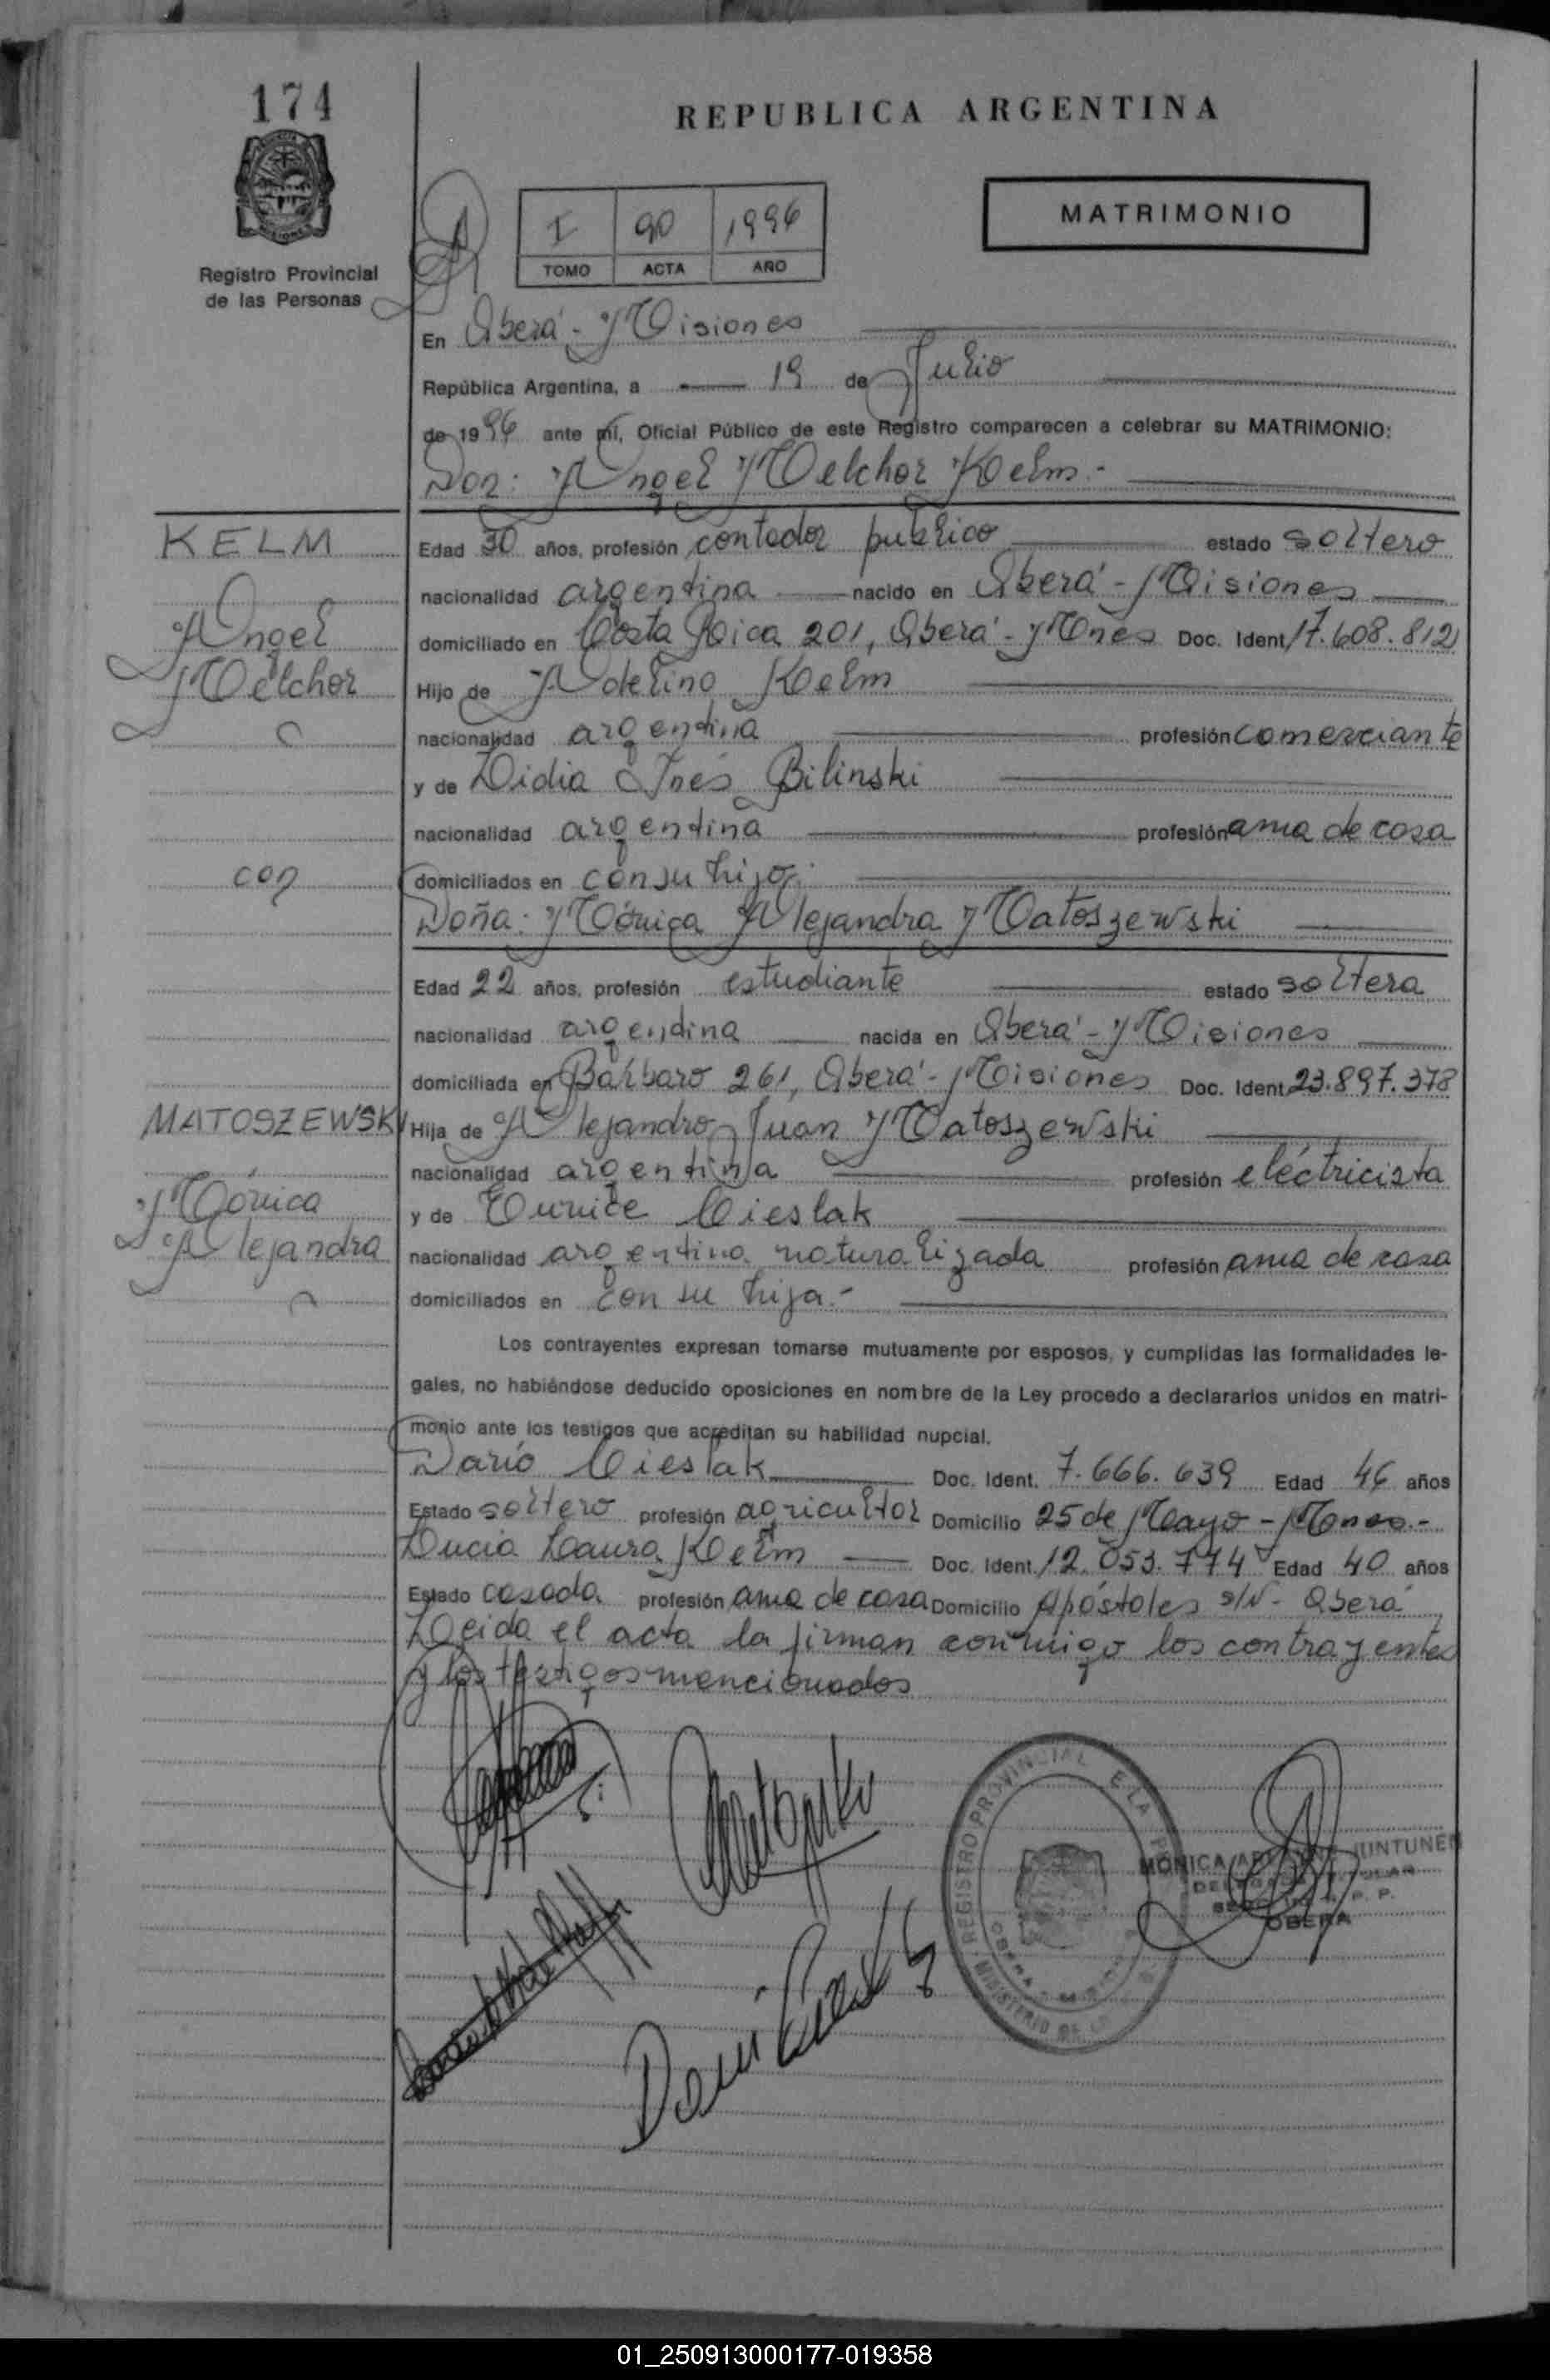 174
REPUBLICA ARGENTINA
MATRIMONIO
I 90 1996
TOMO ACTA AÑO
Registro Provincial
de las Personas
En Oberá - Misiones
República Argentina, a 19 de Julio
de 1996 ante mí, Oficial Público de este Registro comparecen a celebrar su MATRIMONIO:
Don: Angel Melchor Kelm.-
KELM
Angel
Melchor
Edad 30 años, profesión contador publico estado soltero
nacionalidad argentina nacido en Oberá - Misiones
domiciliado en Costa Rica 201, Oberá - Mnes Doc. Ident. 17.608.812
Hijo de Adelino Kelm
nacionalidad argentina profesión comerciante
y de Lidia Inés Bilinski
nacionalidad argentina profesión ama de casa
con
domiciliados en con su hijo.
Doña: Mónica Alejandra Matoszewski
Edad 22 años, profesión estudiante estado soltera
nacionalidad argentina nacida en Oberá - Misiones
domiciliada en Barbaro 261, Oberá - Misiones Doc. Ident. 23.897.378
MATOSZEWSKI
Mónica
Alejandra
Hija de Alejandro Juan Matoszewski
nacionalidad argentina profesión electricista
y de Eunice Cieslak
nacionalidad argentina naturalizada profesión ama de casa
domiciliados en con su hija.-
Los contrayentes expresan tomarse mutuamente por esposos, y cumplidas las formalidades le-
gales, no habiéndose deducido oposiciones en nombre de la Ley procedo a declararlos unidos en matri-
monio ante los testigos que acreditan su habilidad nupcial.
Darío Cieslak Doc. Ident. 7.666.639 Edad 46 años
Estado soltero profesión agricultor Domicilio 25 de Mayo - Mnes.-
Lucia Laura Kelm Doc. Ident. 12.053.774 Edad 40 años
Estado casada profesión ama de casa Domicilio Apóstoles s/N - Oberá
Leida el acta la firman conmigo los contrayentes
y los testigos mencionados
REGISTRO PROVINCIAL
MINISTERIO DE
MONICA
OBERA
01_250913000177-019358